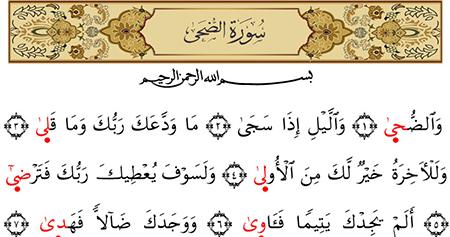 سُورَةُ الضُّحَىٰ
بسم الله الرحمن الرحيم
وَٱلضُّحَىٰ ﴿١﴾ وَٱلَّيْلِ إِذَا سَجَىٰ ﴿٢﴾ مَا وَدَّعَكَ رَبُّكَ وَمَا قَلَىٰ ﴿٣﴾
وَلَلْأٓخِرَةُ خَيْرٌ لَّكَ مِنَ ٱلْأُولَىٰ ﴿٤﴾ وَلَسَوْفَ يُعْطِيكَ رَبُّكَ فَتَرْضَىٰٓ
﴿٥﴾ أَلَمْ يَجِدْكَ يَتِيمًا فَـَٔاوَىٰ ﴿٦﴾ وَوَجَدَكَ ضَآلًّا فَهَدَىٰ ﴿٧﴾